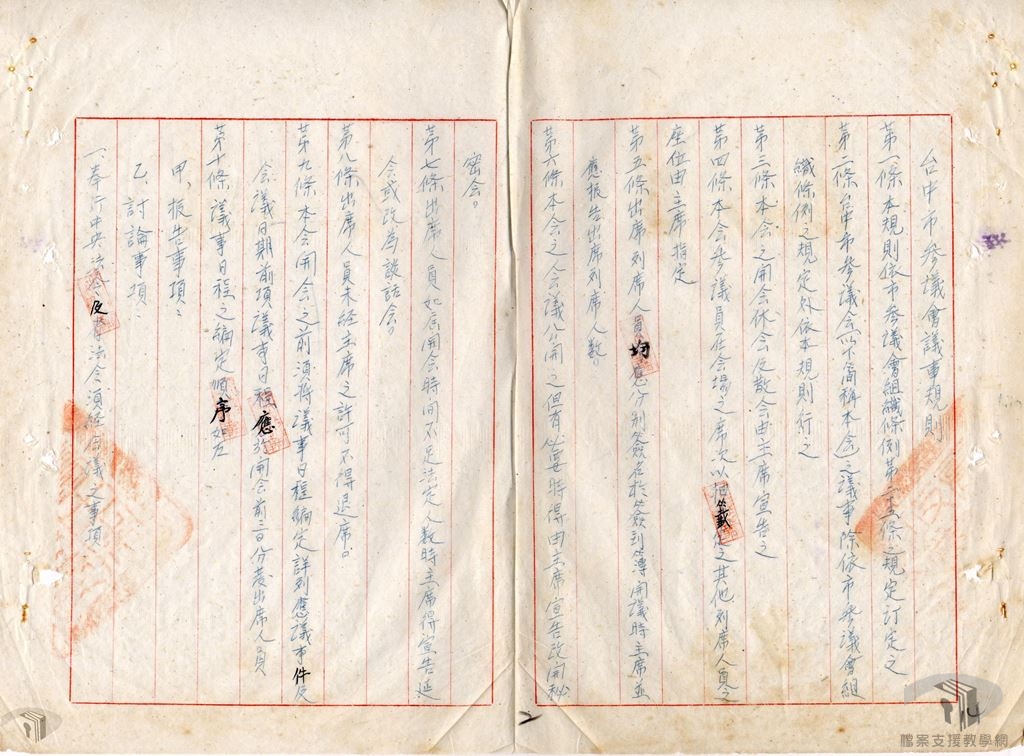 台中市參議會議事規則
第一條本規則依市參議會組織條例第十五條之規定訂定之
第二條台中市參議會(以下簡稱本会)之議事除依市參議會組
織條例之規定外依本規則行之
第三條本会之開会休会及散会由主席宣告之
第四條本会參議員在会場之席次以抽籤定之其他列席人員之
座位由主席指定
第五條出席列席人員均應分別簽名於簽到簿開議時主席並
應报告出席列席人数。
第六條本会之会議公開之但有必要時得由主席宣告改開秘
密会。
第七條出席人員如屆開会時间不足法定人数時主席得宣告延
会或改為談話会。
第八條出席人員未经主席之許可不得退席。
第九條本会開会之前須將議事日程編定詳列應議事件及
会議日期前項議事日程應於開会前三日分发出席人員
第十條議事日程之編定順序如左
甲、报告事項：
乙、討論事項：
一、奉行中央法及法令須经会議之事項
2
檔案支援教學網